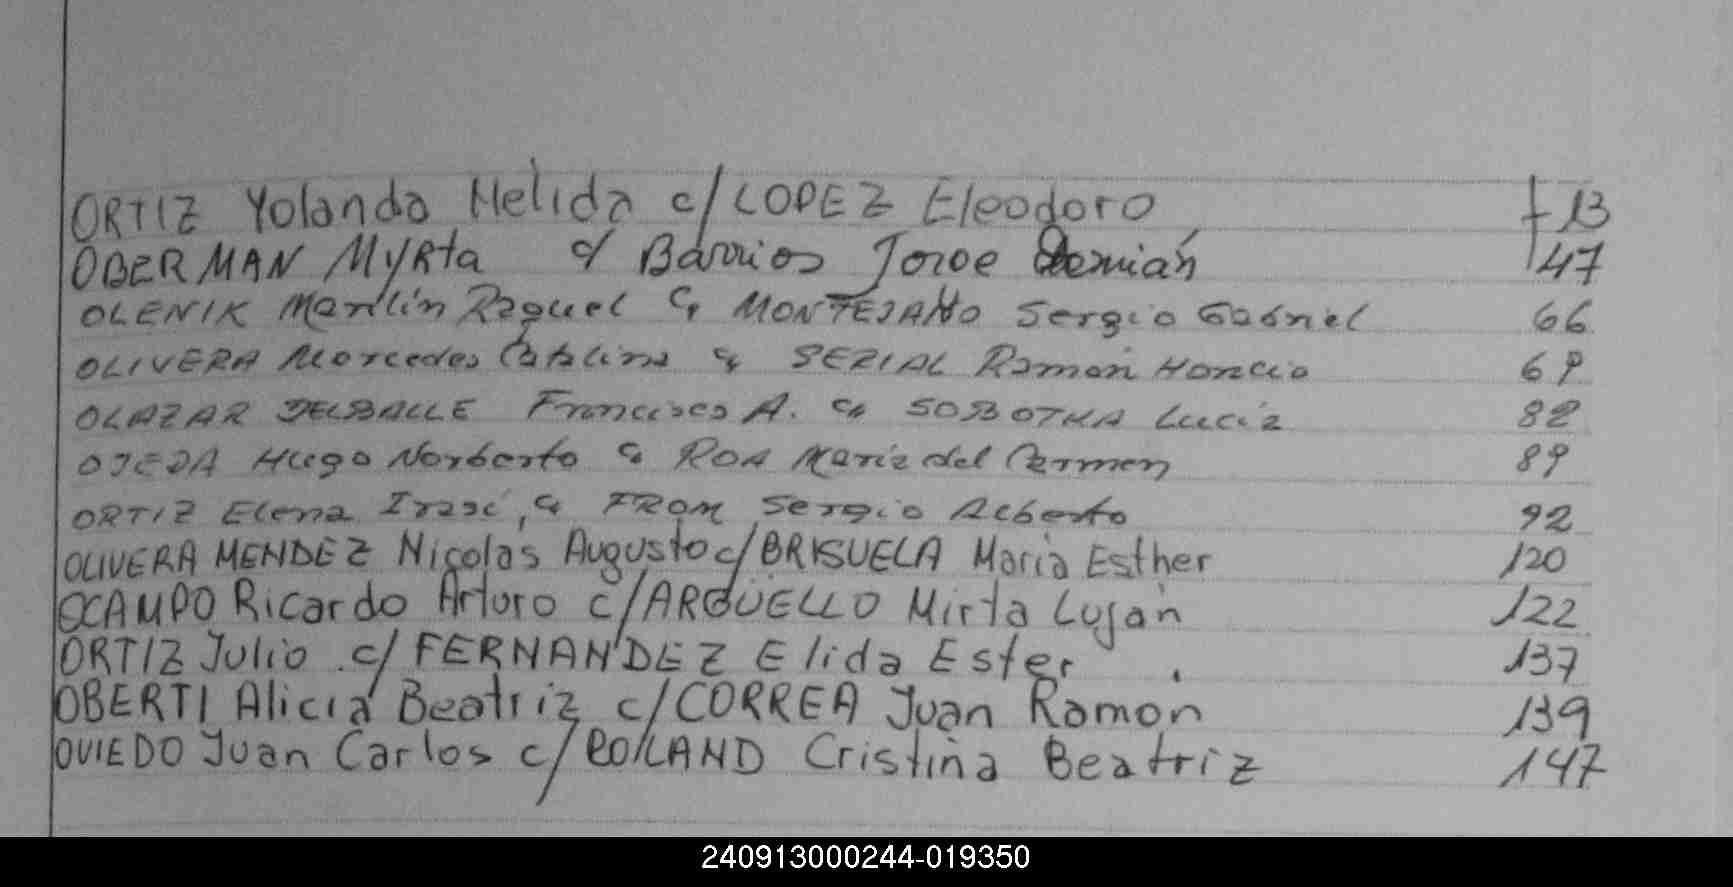 ORTIZ Yolanda Nelida c/ LOPEZ Eleodoro f 13
OBERMAN Myrta c/ Barrios Jorge Demián 47
OLENIK Marilín Raquel c/ MONTEJANO Sergio Gabriel 66
OLIVERA Mercedes Catalina c/ SERIAL Ramón Horacio 69
OLAZAR DELBALLE Francisco A. c/ SOBOTKA Lucia 82
OJEDA Hugo Norberto c/ ROA Maria del Carmen 89
ORTIZ Elena c/ FROM Sergio Alberto 92
OLIVERA MENDEZ Nicolás Augusto c/ BRISUELA Maria Esther 120
OCAMPO Ricardo Arturo c/ ARGÜELLO Mirta Luján 122
ORTIZ Julio c/ FERNANDEZ Elida Ester 137
OBERTI Alicia Beatriz c/ CORREA Juan Ramon 139
OVIEDO Juan Carlos c/ Cristina Beatriz 147
240913000244-019350